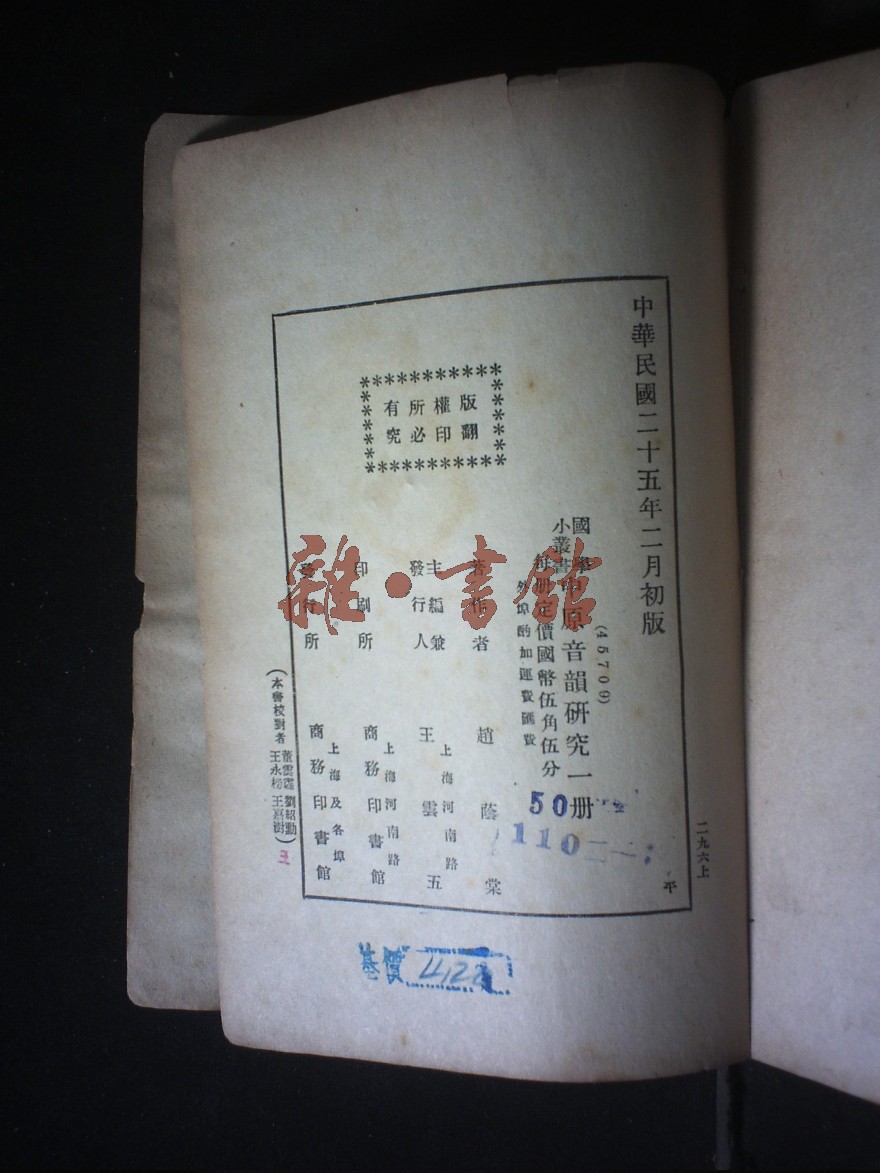 中華民國二十五年二月初版
(45709)
國學小叢書中原音韻研究一册
每册定價國幣伍角伍分
外埠酌加運費匯費
版權所有
翻印必究
著作者 趙蔭棠
主編兼發行人 王雲五
上海河南路
印刷所 商務印書館
上海河南路
發行所 商務印書館
上海及各埠
(本書校對者
王永榜 王嘉澍)
二九六上
平
50
110
王
基價
雜·書館